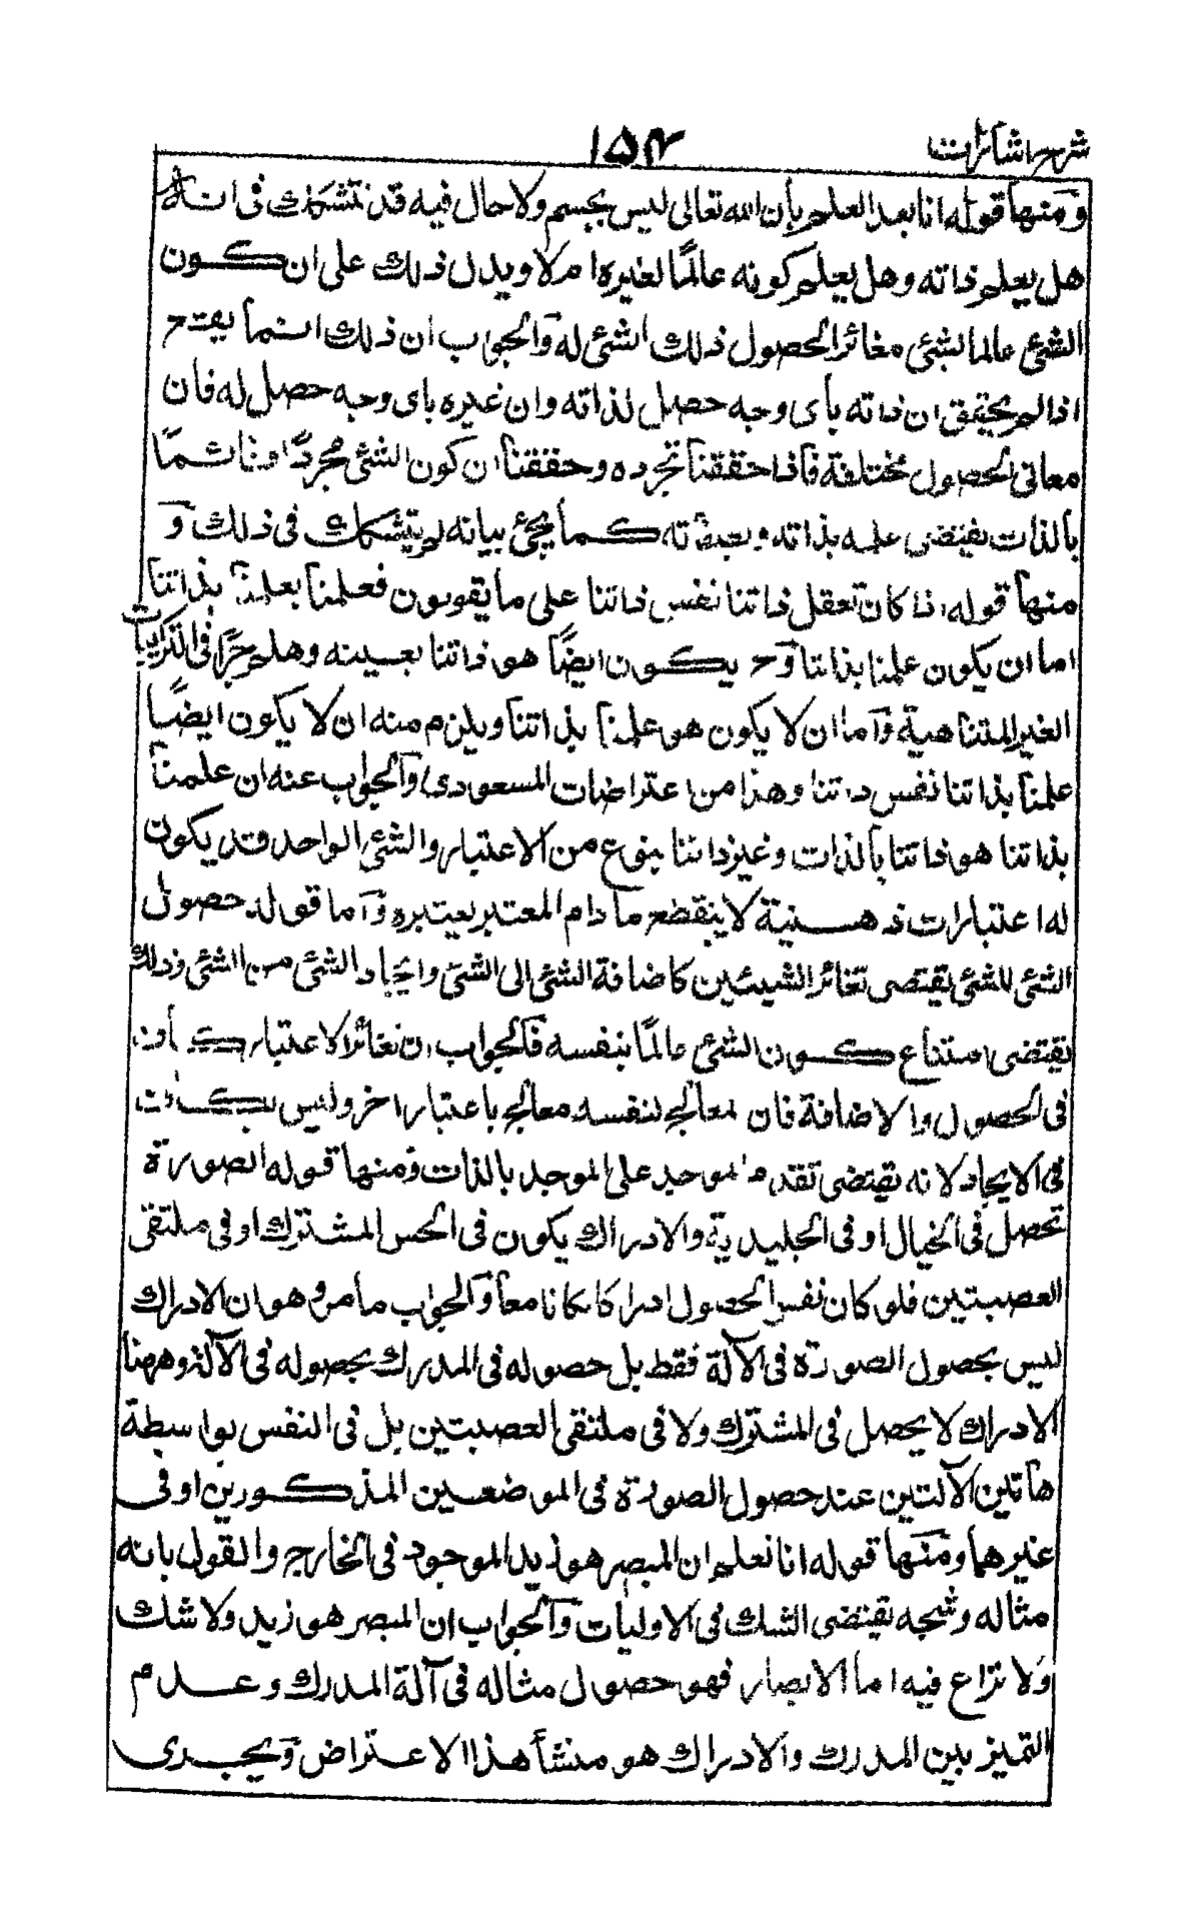 شرح اشارات
۱۵۴
ومنها قوله انا بعد العلم بأن الله تعالى ليس بجسم ولا حال فيه قد نتشكك فى انه
هل يعلم ذاته وهل يعلم كونه عالمًا لغيره ام لا ويدل ذلك على ان كون
الشئ عالما لشئ مغائرا لحصول ذلك الشئ له والجواب ان ذلك انما يقع
اذا لم يتحقق ان ذاته بأى وجه حصل لذاته وان غيره باى وجه حصل له فان
معانى الحصول مختلفة فأذا حققنا تجرده وحققنا ان كون الشئ مجردًا قائمًا
بالذات يقتضى علمه بذاته وبصفاته كما يجئ بيانه لم يتشكك فى ذلك و
منها قوله اذا كان تعقل ذاتنا نفس ذاتنا على ما يقولون فعلمنا بعلمنا بذاتنا
اما ان يكون علمنا بذاتنا وح يكون ايضًا هو ذاتنا بعينه وهلم جرًا فى التركيبات
الغير المتناهية وأما ان لا يكون هو علمنا بذاتنا ويلزم منه ان لا يكون ايضًا
علمنا بذاتنا نفس ذاتنا وهذا من اعتراضات المسعودى والجواب عنه ان علمنا
بذاتنا هو ذاتنا بالذات وغير ذاتنا بنوع من الاعتبار والشئ الواحد قد يكون
له اعتبارات ذهنية لا ينقطع ما دام المعتبر يعتبره وأما قوله حصول
الشئ للشئ يقتضى تغائر الشيئين كاضافة الشئ الى الشئ وايجاد الشئ من الشئ وذلك
يقتضى امتناع كون الشئ عالمًا بنفسه فالجواب ان تغائر الاعتبار كاف
فى الحصول والاضافة فان المعالج لنفسه معالج باعتبار اخر وليس بكاف
فى الايجاد لانه يقتضى تقدم الموجد على الموجد بالذات ومنها قوله الصورة
تحصل فى الخيال او فى الجليدية والادراك يكون فى الحس المشترك او فى ملتقى
العصبتين فلو كان نفس الحصول ادراكا كانا معا والجواب ما مر وهو ان الادراك
ليس بحصول الصورة فى الآلة فقط بل حصوله فى المدرك بحصوله فى الآلة وههنا
الادراك لا يحصل فى المشترك ولا فى ملتقى العصبتين بل فى النفس بواسطة
هاتين الآلتين عند حصول الصورة فى الموضعين المذكورين او فى
غيرهما ومنها قوله انا نعلم ان المبصر هو زيد الموجود فى الخارج والقول بانه
مثاله وشبحه يقتضى الشك فى الاوليات والجواب ان المبصر هو زيد ولا شك
ولا نزاع فيه اما الابصار فهو حصول مثاله فى آلة المدرك وعدم
التميز بين المدرك والادراك هو منشأ هذا الاعتراض ويجرى